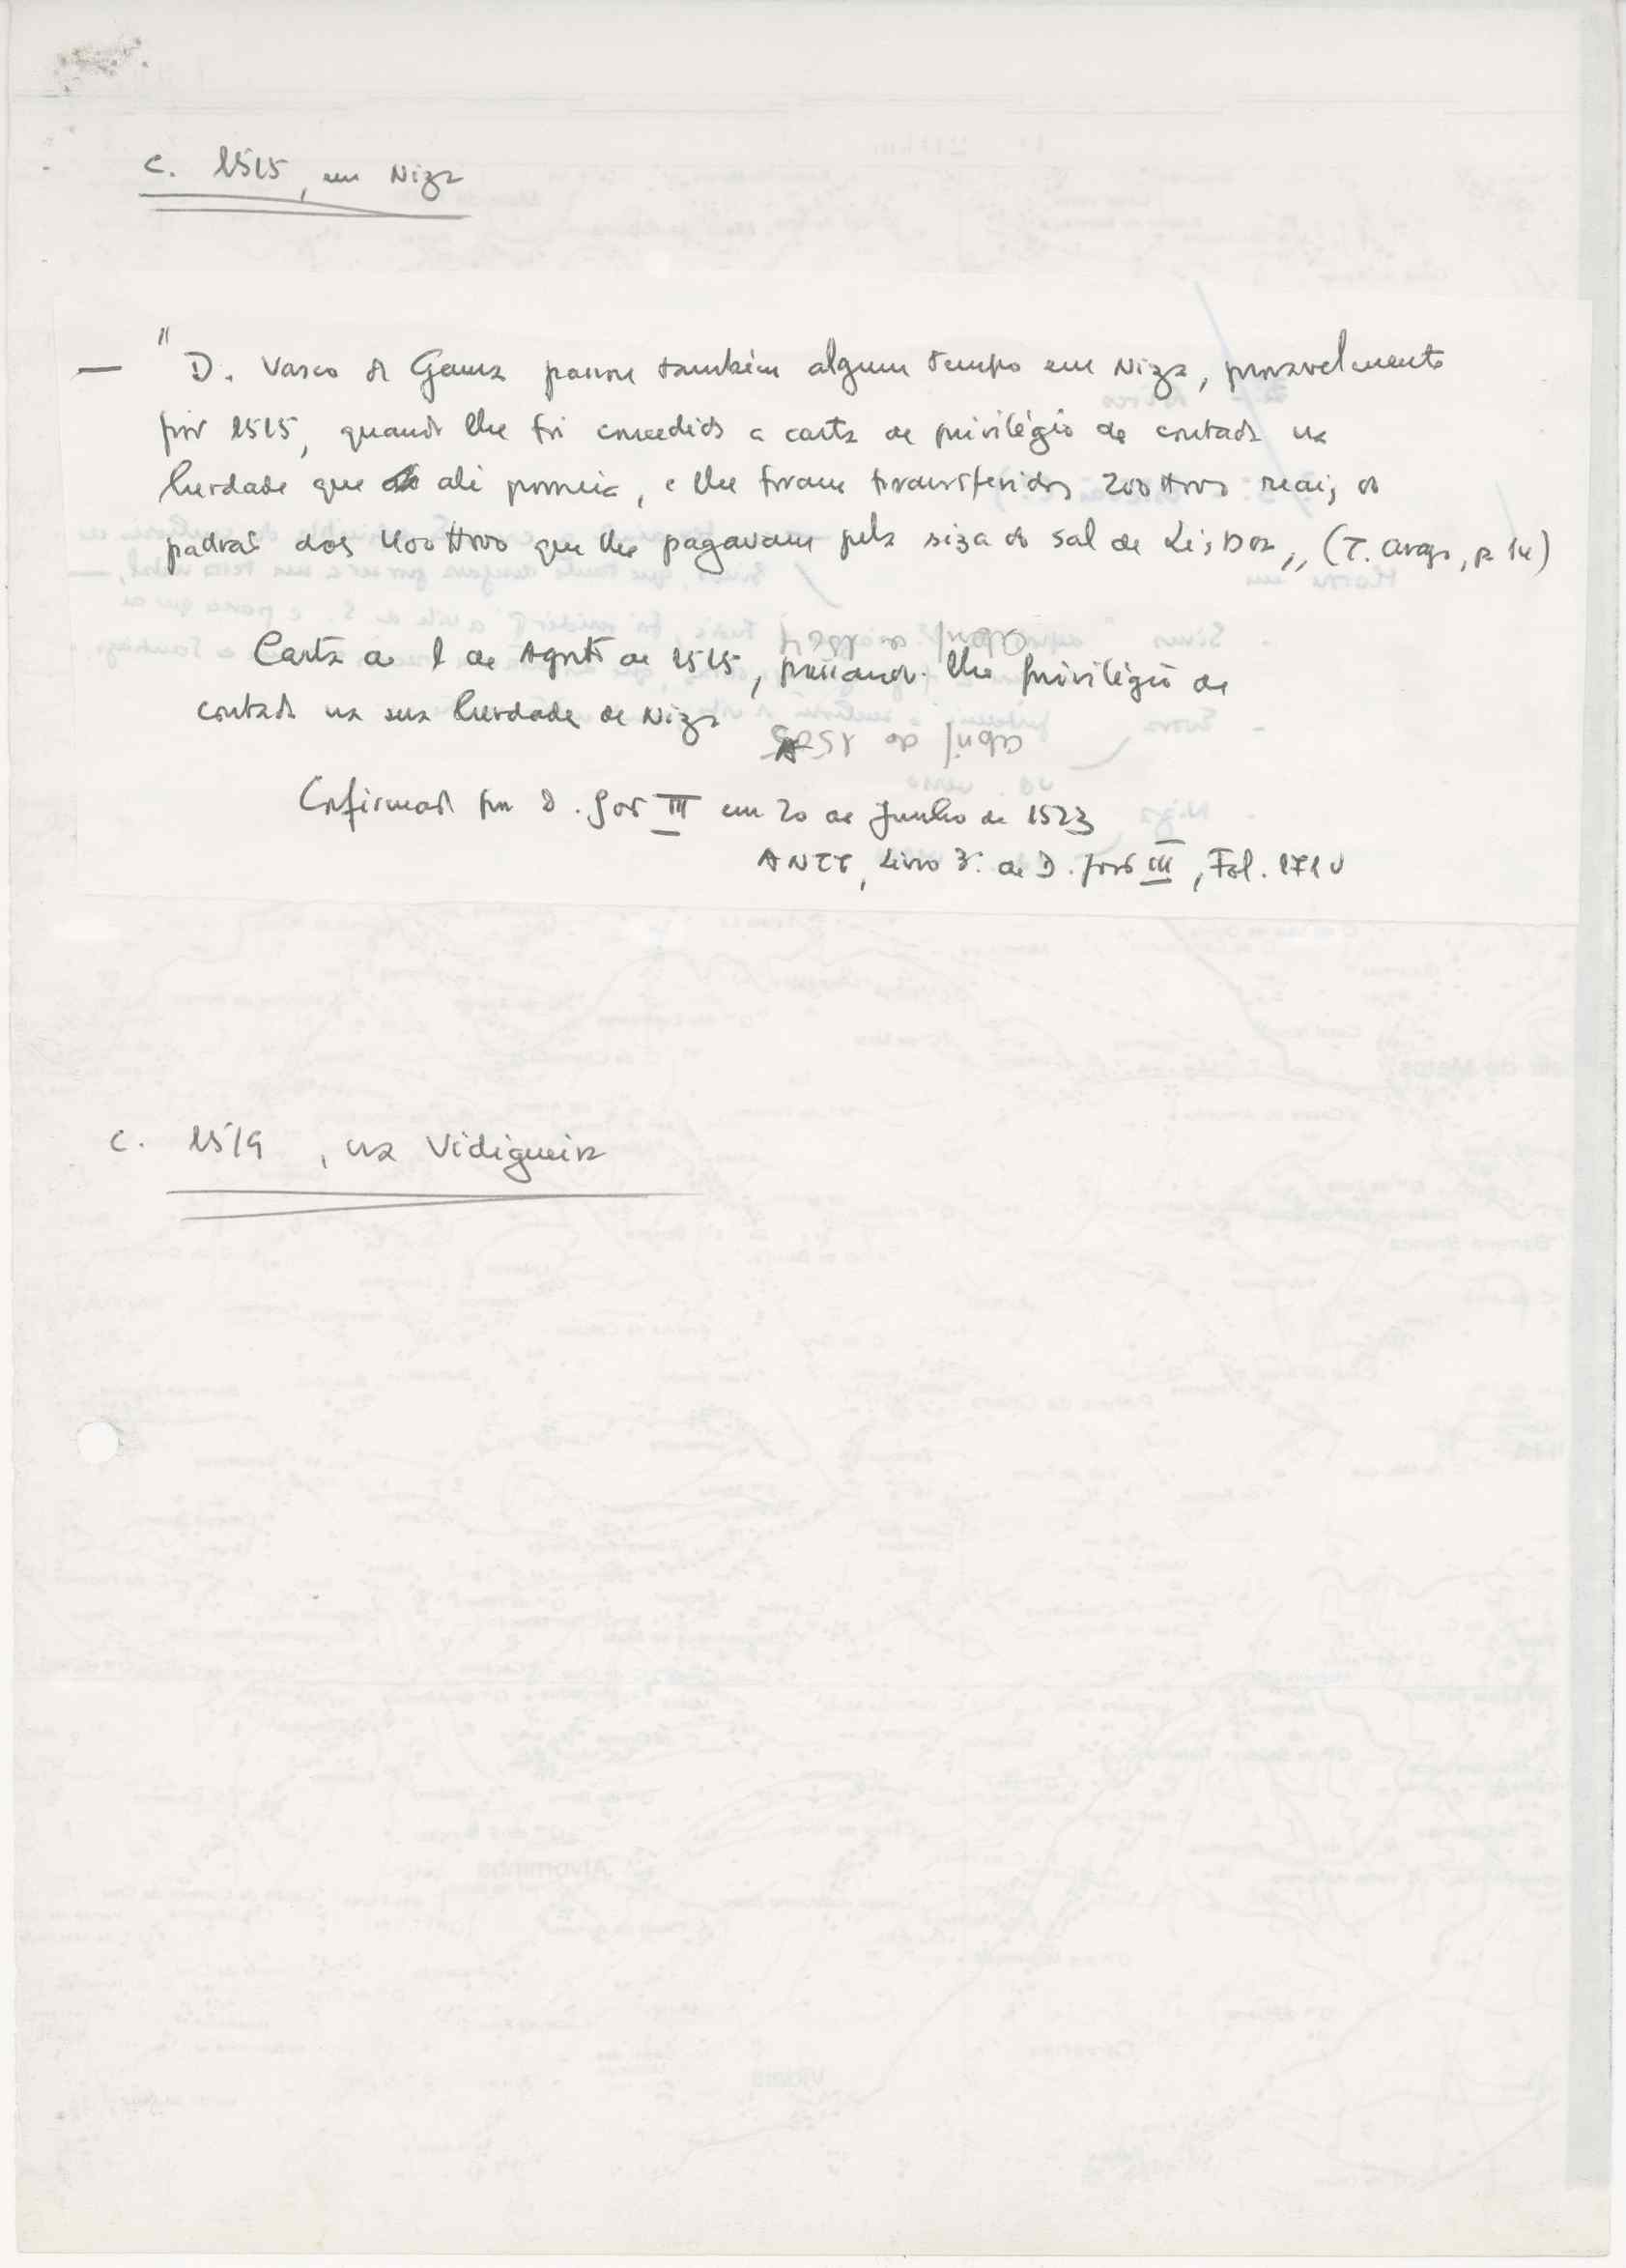 c. 1515, em Niza
— "D. Vasco da Gama passou também algum tempo em Niza, provavelmente
por 1515, quando lhe foi concedido a carta de privilégio de coutada na
herdade que ali possuía, e lhe foram transferidos 200 reais do
padrão dos que lhe pagavam pela siza do sal de Lisboa,, (T. Aragão, p. 14)
Carta de 1 de Agosto de 1515, passando-lhe privilégio de
coutada na sua herdade de Niza
Confirmada por D. João III em 20 de Junho de 1523
ANTT, Livro 3º de D. João III, Fol. 171 v
c. 1519, na Vidigueira